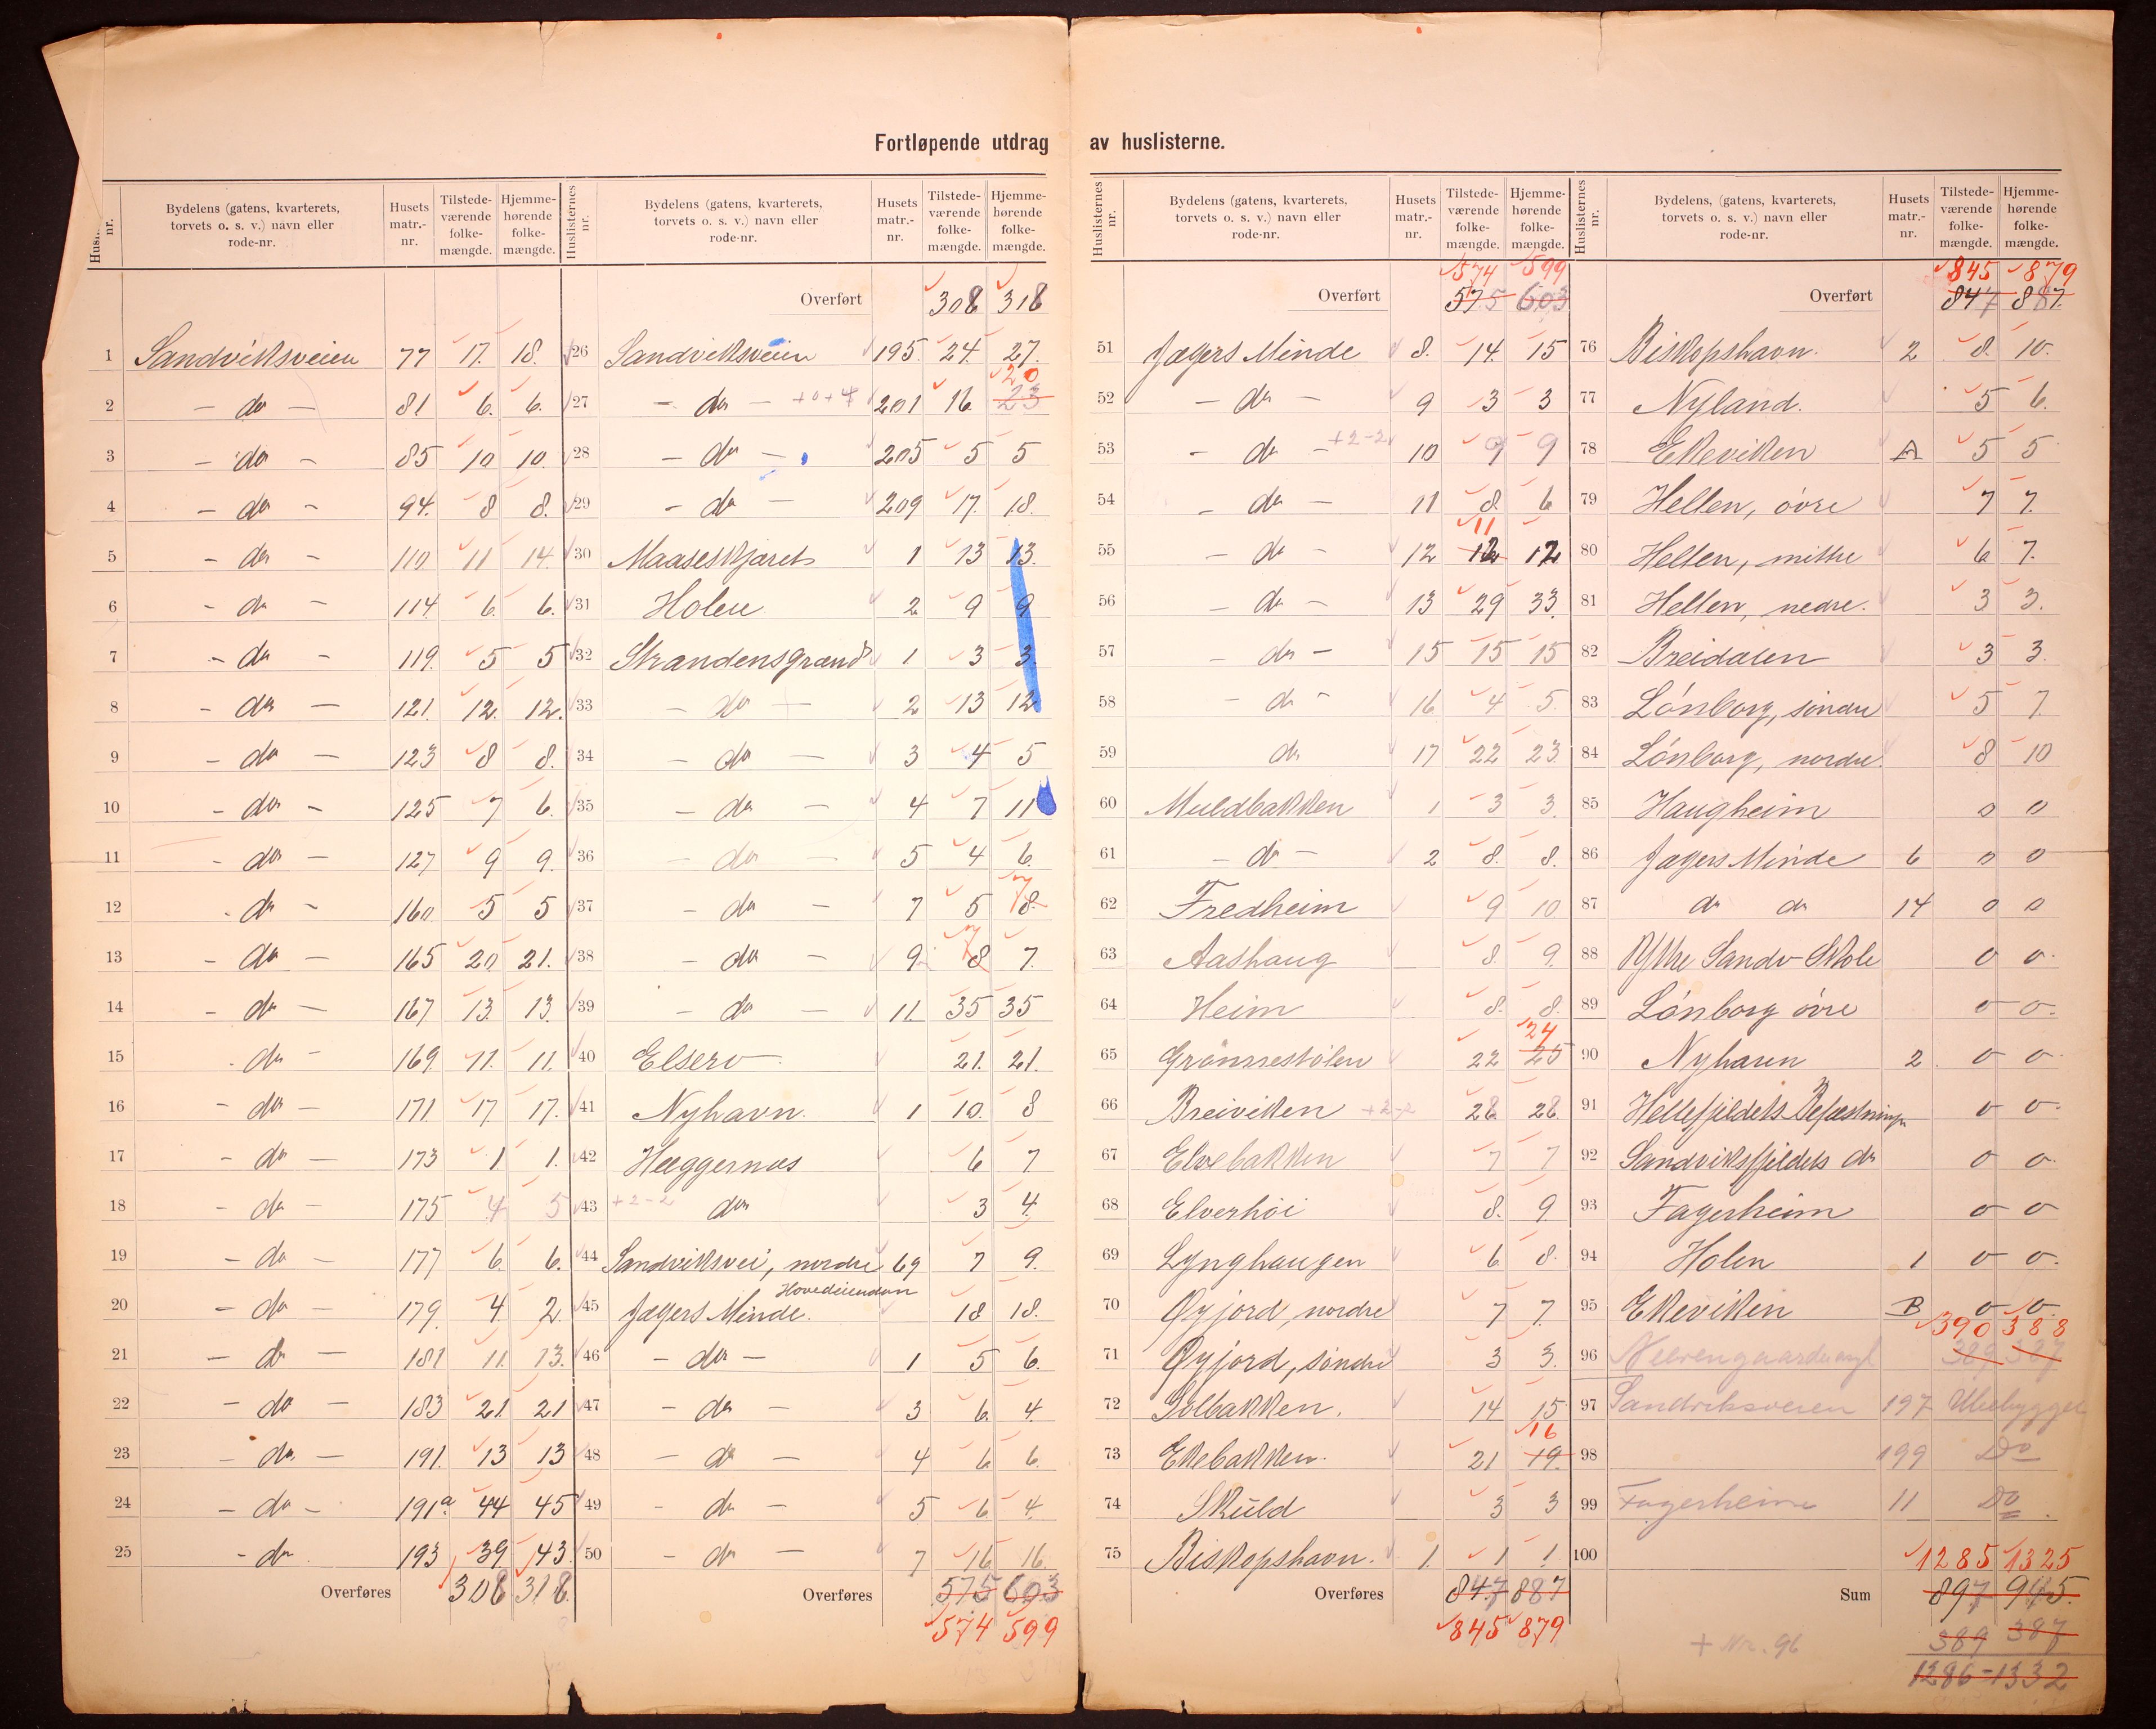 Fortløpende utdrag av huslisterne.
Huslisternes nr. | Bydelens (gatens, kvarterets, torvets o. s. v.) navn eller rode-nr. | Husets matr.-nr. | Tilstedeværende folkemængde. | Hjemmehørende folkemængde.
1 Sandviksveien 77 17. 18.
2 - do - 81 6. 6.
3 - do - 85 10 10.
4 - do - 94. 8 8.
5 - do - 110 11 14.
6 - do - 114. 6. 6.
7 - do - 119. 5 5
8 - do - 121. 12. 12.
9 - do - 123 8 8.
10 - do - 125 7 6.
11 - do - 127 9 9.
12 - do - 160. 5 5
13 - do - 165 20 21.
14 - do - 167 13. 13.
15 - do - 169. 11. 11.
16 - do - 171. 17 17.
17 - do - 173 1 1.
18 - do - 175 4 5
19 - do - 177 6. 6.
20 - do - 179. 4. 2.
21 - do - 181 11. 13.
22 - do - 183 21. 21
23 - do - 191. 13 13
24 - do - 191a. 44 45
25 - do 193 39. 43.
Overføres 308 318.
Huslisternes nr. | Bydelens (gatens, kvarterets, torvets o. s. v.) navn eller rode-nr. | Husets matr.-nr. | Tilstedeværende folkemængde. | Hjemmehørende folkemængde.
Overført 308 318
26 Sandviksveien 195. 24. 27.
27 - do - +0+4 201 16. 23 20
28 - do - 205 5 5
29 - do - 209 17. 18.
30 Maaseskjæret 1 13 13.
31 Holen 2 9 9
32 Strandensgrænd 1 3 3.
33 - do - 2 13 12
34 - do - 3 4 5
35 - do - 4 7 11
36 - do - 5 4 6.
37 - do - 7 5 8. 7
38 - do - 9 8 7 7.
39 - do - 11 35 35
40 Elsero 21. 21.
41 Nyhavn. 1 10. 8
42 Hæggernæs 6 7
43 +2-2 do 3 4.
44 Sandviksvei, nordre 69 7 9.
Hovedeiendom
45 Jægers Minde. 18 18.
46 - do - 1 5 6.
47 - do - 3 6. 4.
48 - do - 4 6 6.
49 - do - 5 6 4.
50 - do - 7 16 16.
Overføres 575 603
574 599
Huslisternes nr. | Bydelens (gatens, kvarterets, torvets o. s. v.) navn eller rode-nr. | Husets matr.-nr. | Tilstedeværende folkemængde. | Hjemmehørende folkemængde.
574 599
Overført 575 603
51 Jægers Minde 8. 14. 15
52 - do - 9 3 3
53 - do - +2-2 10 9 9
54 - do - 11 8. 6
55 - do - 12 12 11 12
56 - do - 13 29 33.
57 - do - 15 15 15
58 - do - 16 4 5.
59 do 17 22 23.
60 Muldbakken 1 3 3.
61 - do - 2 8. 8.
62 Fredheim 9 10
63 Aashaug 8. 9.
64 Heim 8. 8.
65 Grønnestølen 22 25 24
66 Breiviken +2-2 28 28
67 Elvebakken 7 7
68 Elverhøi 8. 9.
69 Lynghaugen 6 8.
70 Øyjord, nordre 7 7.
71 Øyjord, søndre 3 3.
72 Solbakken. 14 15
73 Ekebakken. 21 19. 16
74 Skuld 3 3
75 Biskopshavn. 1. 1 1.
Overføres 847 887
845 879
Huslisternes nr. | Bydelens (gatens, kvarterets, torvets o. s. v.) navn eller rode-nr. | Husets matr.-nr. | Tilstedeværende folkemængde. | Hjemmehørende folkemængde.
845 879
Overført 847 887
76 Biskopshavn. 2 8. 10.
77 Nyland. 5 6.
78 Ekeviken A 5 5
79 Hellen, øvre 7 7.
80 Hellen, mittre 6 7.
81 Hellen, nedre. 3 3.
82 Breidalen 3 3.
83 Lønborg, søndre 5 7.
84 Lønborg, nordre. 8 10
85 Haugheim 0 0
86 Jægers Minde 6 0 0
87 do do 14 0 0
88 Yttre Sandv-Skole 0 0.
89 Lønborg øvre 0 0.
90 Nyhavn 2. 0 0.
91 Hellefjeldets Befæstninger 0 0.
92 Sandviksfjeldets do 0 0.
93 Fagerheim 0 0
94 Holen 1 0 0.
95 Ekeviken B 0 0.
390 388
96 389 387
97 Sandviksveien 197 Ubebygget
98 199 Do
99 Fagerheim 11 Do
100 1285 1325
Sum 897 945.
+ Nr. 96 389 387
1286-1332